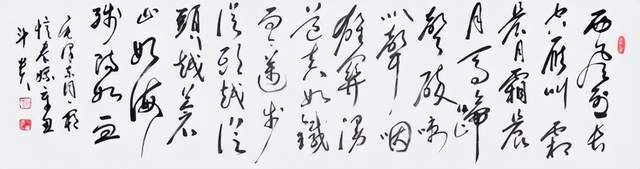 西风烈长
空雁叫霜
晨月霜晨
月马蹄
声碎喇
叭声咽
雄关漫
道真如铁
而今迈步
从头越从
头越苍
山如海
残阳如血
毛泽东
忆秦娥娄山关